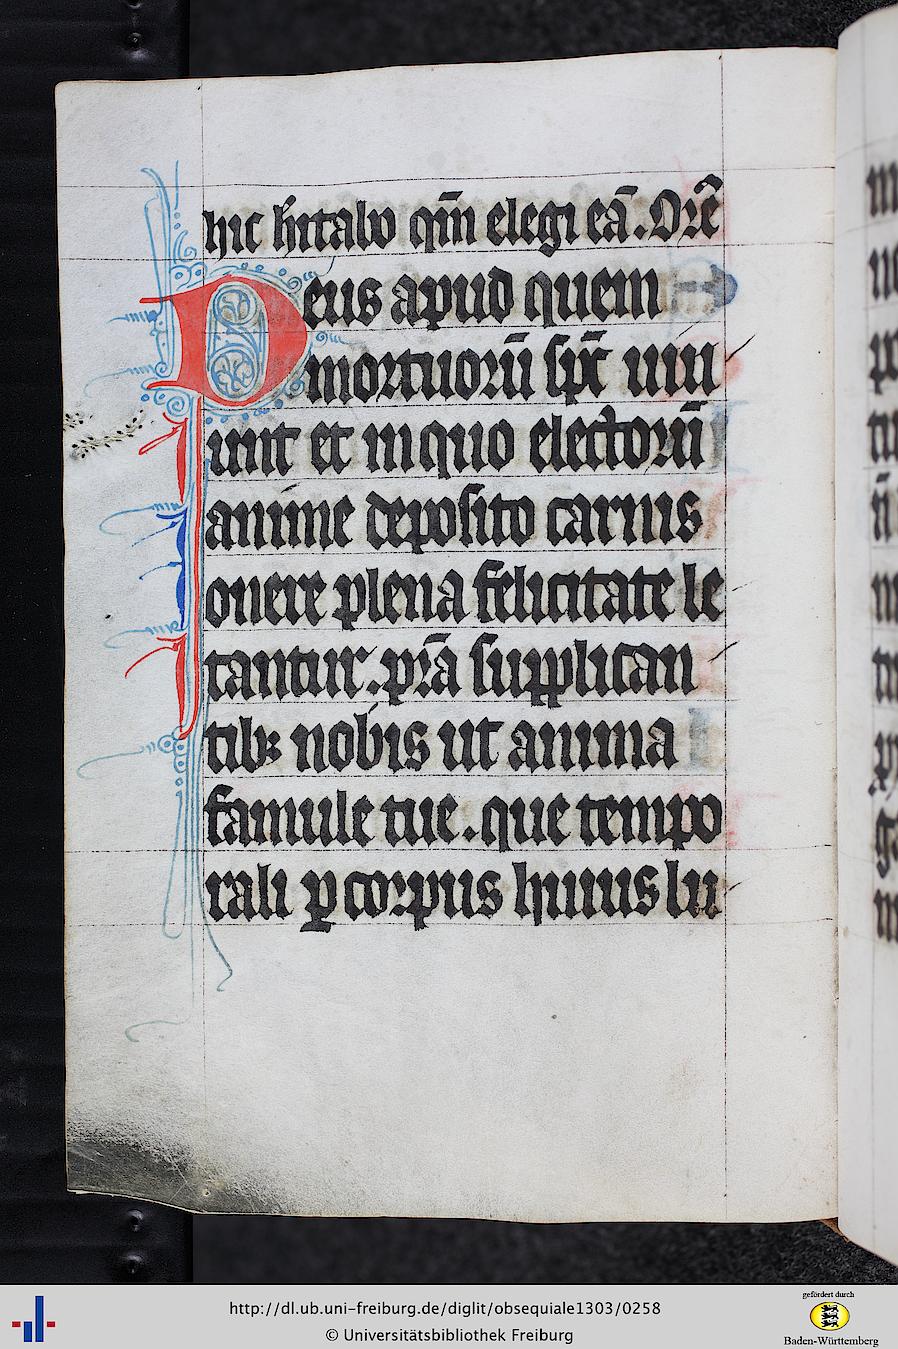 hic hĩtabo qm̃ elegi eã. Orẽ
Deus apud quem
mortuorũ sp̃c uiui
unt et in quo electorũ
anime deposito carnis
onere plena felicitate le
tantur. pr̃a supplican
tibꝫ nobis ut anima
famule tue. que tempo
rali ꝑ corpus huius lu
http://dl.ub.uni-freiburg.de/diglit/obsequiale1303/0258
© Universitätsbibliothek Freiburg
gefördert durch
Baden-Württemberg